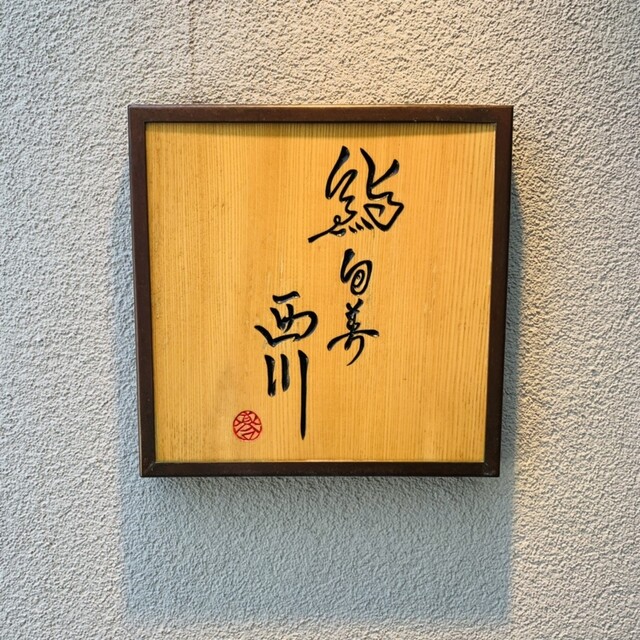 鮨
旬美
西川